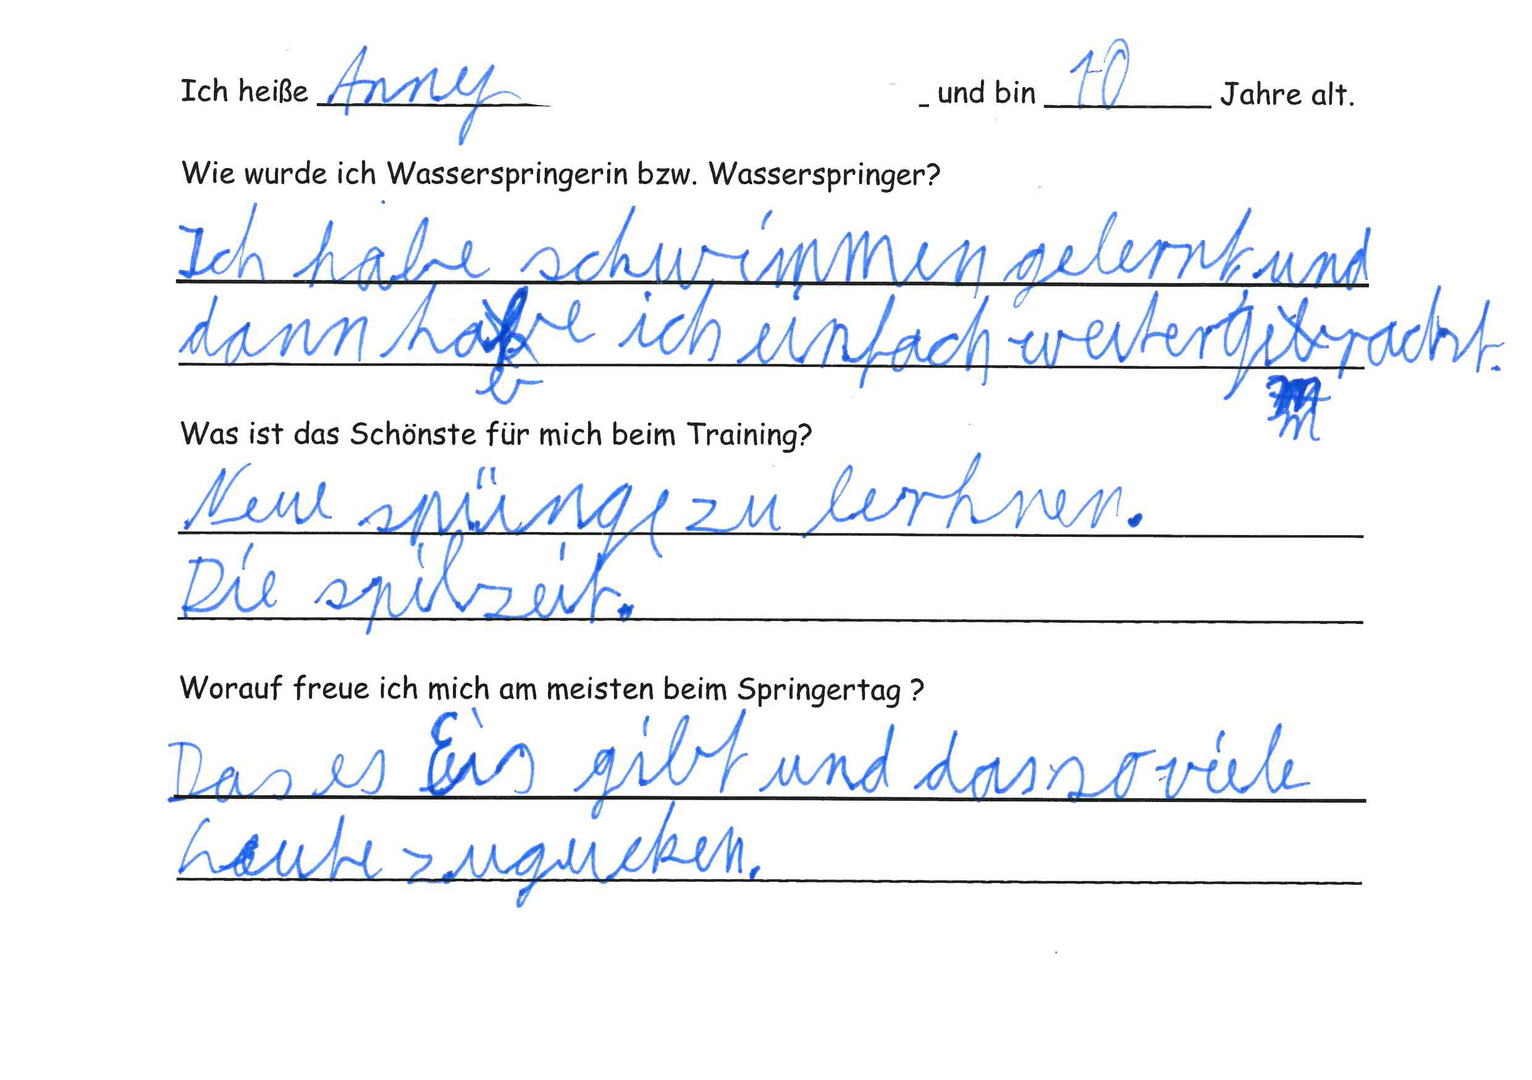 Ich heiße Anney und bin 10 Jahre alt.
Wie wurde ich Wasserspringerin bzw. Wasserspringer?
Ich habe schwimmen gelernt und
dann habe ich einfach weitergemacht.
Was ist das Schönste für mich beim Training?
Neue spünge zu lerhnen.
Die spilzeit.
Worauf freue ich mich am meisten beim Springertag ?
Das es Eis gibt und das so viele
Leute zugucken.